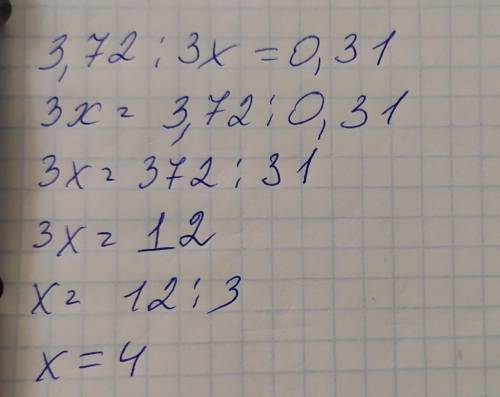 3,72 : 3x = 0,31
3x = 3,72 : 0,31
3x = 372 : 31
3x = 12
x = 12 : 3
x = 4